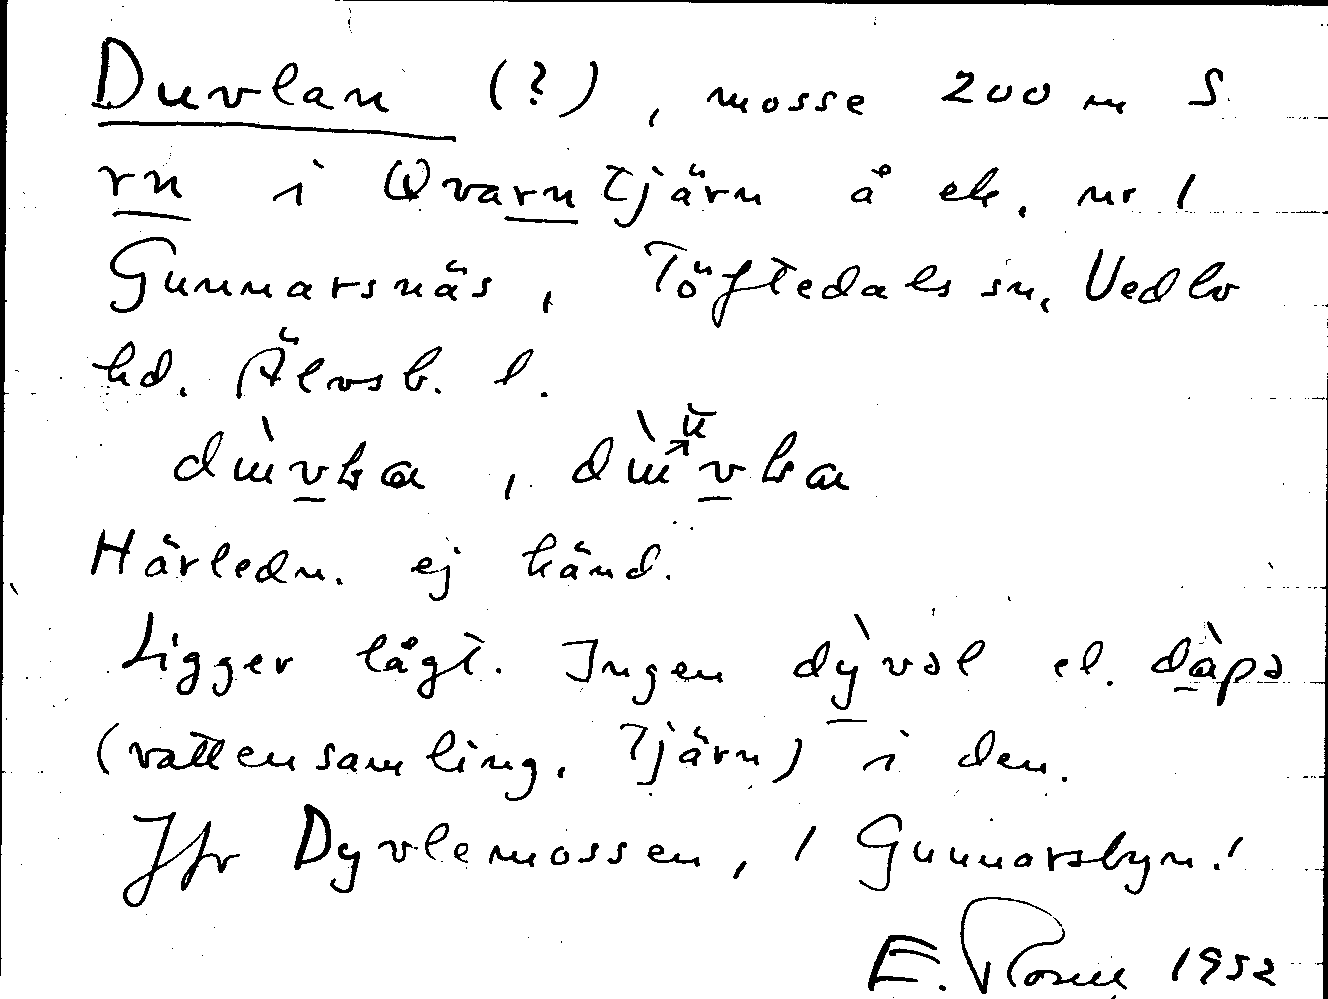 Duvlan (?), mosse 200 m S
rn i Qvarntjärn å ek. nr 1
Gunnarsnäs, Töftedals sn, Vedbo
hd. Älvsb. l.
Härledn. ej känd.
Ligger lågt. Ingen dỳvəl el. dàpə
(vattensamling, tjärn) i den.
Jfr Dyvlemossen, 1 Gunnarsbyn!
E. Rosell 1952